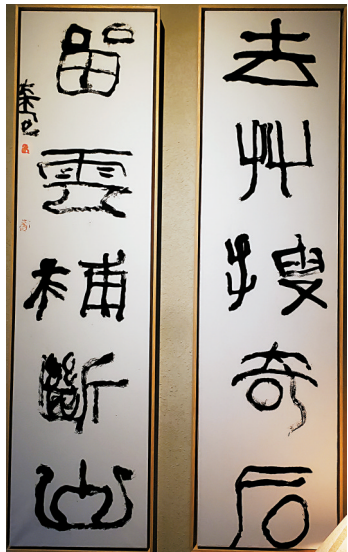 去艸搜奇石
留雲補斷山